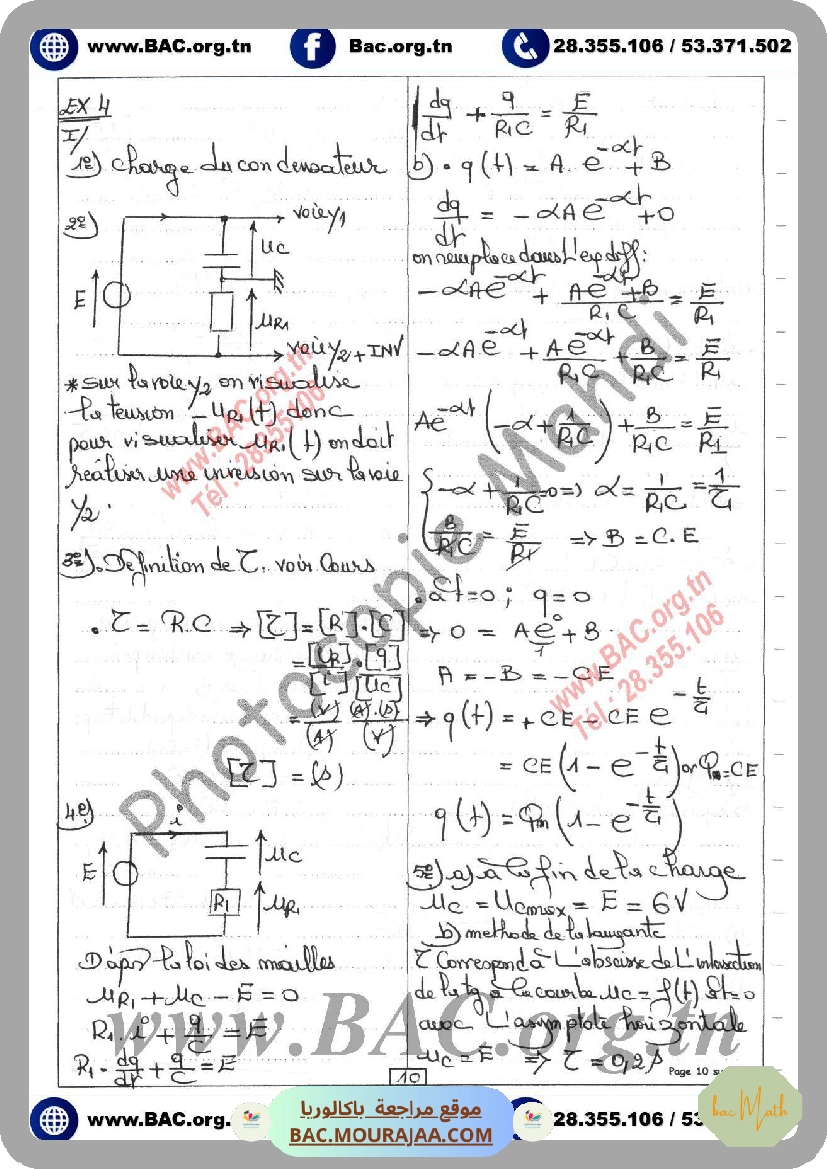 www.BAC.org.tn
Bac.org.tn
28.355.106 / 53.371.502
EX 4
I/
1º) charge du condensateur
2º)
voie y1
uC
E
uR1
voie y2 + INV
* sur la voie y2 on visualise
la tension - uR1(t) donc
pour visualiser uR1(t) on doit
réaliser une inversion sur la voie
y2.
3º) . Définition de τ, voir Cours
. τ = R.C ⇒ [τ] = [R].[C]
= [UR]/[i] . [q]/[uC]
= (V)/(A) . (A).(s)/(V)
[τ] = (s)
4º)
i
E
uC
R1
uR1
D'apr la loi des mailles
uR1 + uC - E = 0
R1.i + q/C = E
R1.dq/dt + q/C = E
dq/dt + q/R1C = E/R1
b) • q(t) = A e^-αt + B
dq/dt = -αA e^-αt + 0
on remplace dans L'eq diff:
-αA e^-αt + (A e^-αt + B)/R1C = E/R1
-αA e^-αt + A e^-αt/R1C + B/R1C = E/R1
A e^-αt (-α + 1/R1C) + B/R1C = E/R1
{ -α + 1/R1C = 0 ⇒ α = 1/R1C = 1/τ1
B/R1C = E/R1 ⇒ B = C.E
. àt=0 ; q=0
⇒ 0 = A e^0 + B
1
A = -B = -CE
⇒ q(t) = + CE - CE e^-t/τ
= CE (1 - e^-t/τ) or Qm = CE
q(t) = Qm (1 - e^-t/τ)
5º) a) à la fin de la charge
uC = uCmax = E = 6V
b) methode de la tangente
τ Correspond à L'abscisse de L'intersection
de la tg à la courbe uC = f(t) àt=0
avec L'asymptote horizontale
uC = E ⇒ τ = 0,2s
10
Page 10 s
Photocopie Mahdi
www.BAC.org.tn
Tél : 28.355.106
www.BAC.org.tn
Tél : 28.355.106
www.BAC.org.tn
www.BAC.org.
موقع مراجعة باكالوريا
BAC.MOURAJAA.COM
28.355.106 / 53
bac Math